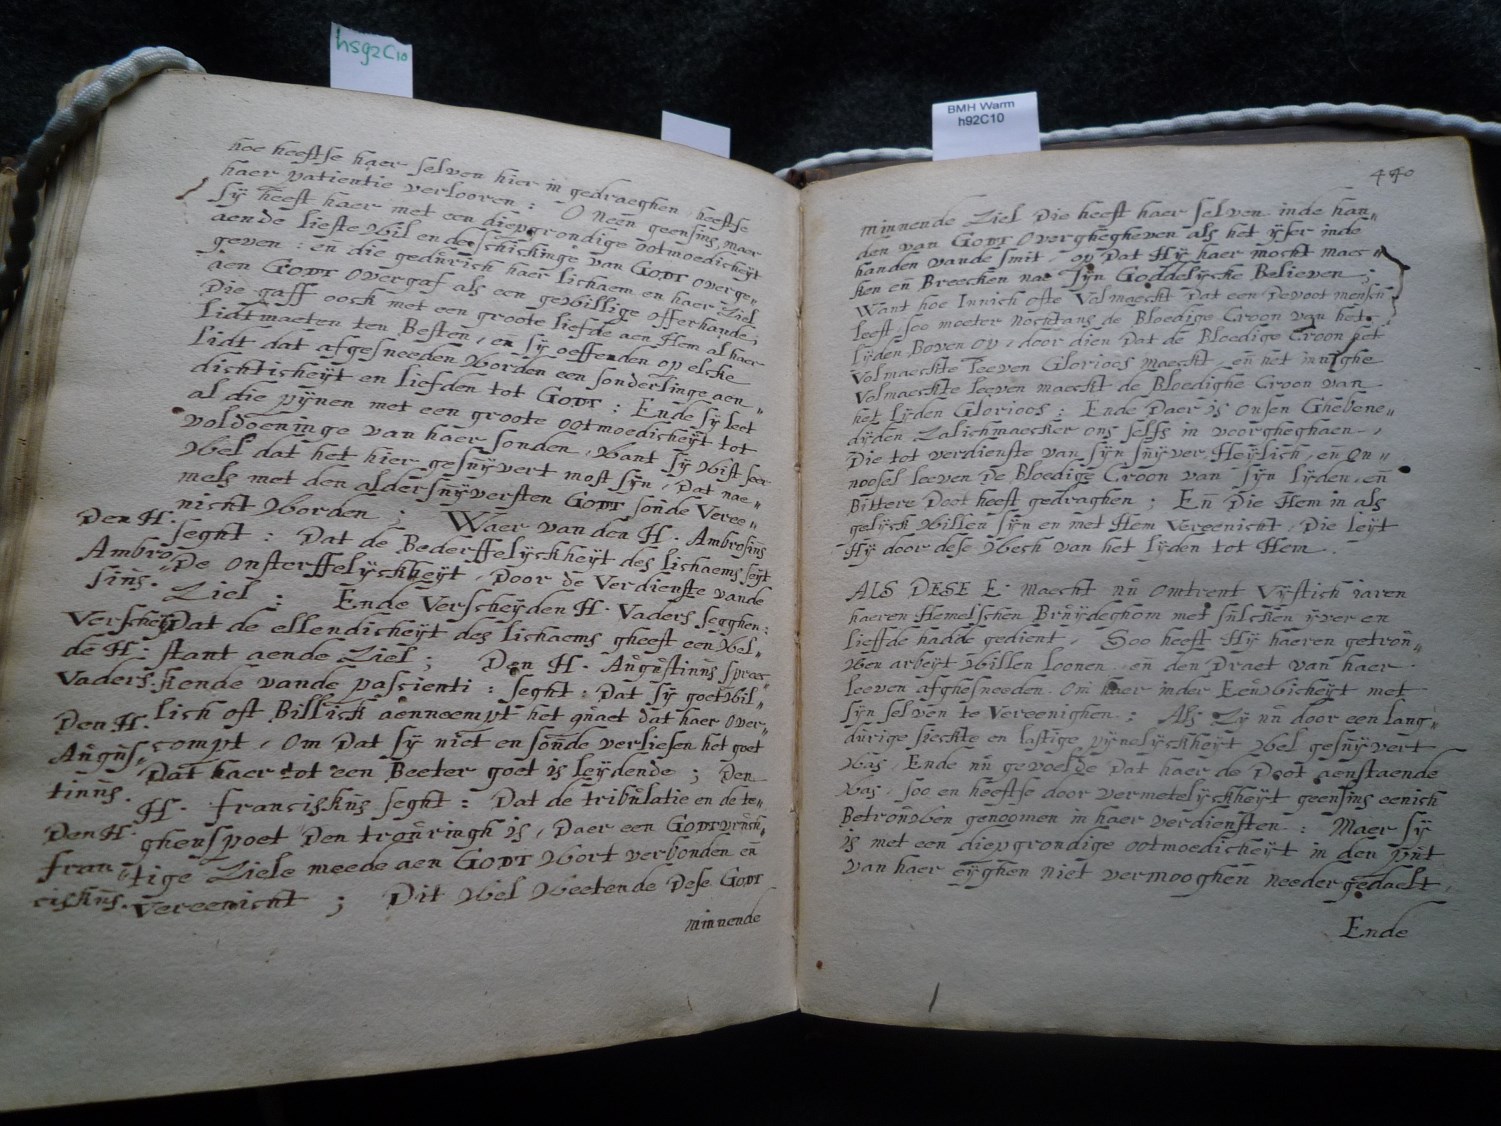 hs92C10
BMH Warm
h92C10
hoe heeftse haer selven hier in gedraeghen, heeftse
haer patientie verlooren: O neen geensins, maer
sÿ heeft haer met een diepgrondige ootmoedicheÿt
aende lieste wil ende schickinge van GODT overge„
geven: en die gedurich haer lichaem en haer Ziel
aen GODT overgaf als een gewillige offerhande;
Die gaff oock met een groote liefde aen Hem al haer
Lidtmaeten ten Besten, en sÿ oeffenden op elcke
Lidt dat afgesneeden worden een sonderlinge aen„
dichticheÿt en liefden tot GODT: Ende sÿ leet
al die pÿnen met een groote ootmoedicheÿt tot
voldoeninge van haer sonden, want sÿ wist seer
wel dat het hier gesuÿvert most sÿn, Dat nae„
mels met den aldersuÿversten GODT sonde Veree„
nicht worden; Waer van den H. Ambrosius
Den H.
Ambro„
sius.
seght: Dat de Bederffelÿckheÿt des lichaems seÿt
De onsterffelÿckheÿt, Door de Verdienste vande
Ziel: Ende Verscheÿden H. Vaders segghen:
Verscheÿ
de H.
Vaders.
Dat de ellendicheÿt des lichaems gheeft een wel„
stant aende Ziel; Den H. Augustinus sprec„
kende vande pascienti: seght: Dat sÿ goetwil„
Den H.
Augus„
tinus.
lich oft Billick aenneempt het quaet dat haer over„
compt, Om Dat sÿ niet en sonde verliesen het goet
Dat haer tot een Beeter goet is leÿdende; Den
H. Franciskus seght: Dat de tribulatie en de te„
Den H.
Fran„
ciskus.
ghenspoet Den trouringh is, Daer een GODTvruch„
tige Ziele meede aen GODT wort verbonden en
Vereenicht; Dit wel weetende Dese GODT
minnende
440
minnende Ziel Die heeft haer selven inde han„
den van GODT overghegheven als het ÿser inde
handen vande smit, op Dat Hÿ haer mocht maec„
ken en Breecken nae Sÿn Goddelÿcke Believen;
Want hoe Innich ofte Volmaeckt Dat een Devoot mensch
leeft, soo moeter nochtans de Bloedige Croon van het
lÿden Boven op, door dien Dat de Bloedige Croon het
Volmaeckte Leeven Glorioos maeckt, en het innighe
Volmaeckte leeven maeckt de Bloedighe Croon van
het lÿden Glorioos: Ende Daer is onsen Ghebene„
dÿden Zalichmaecker ons selfs in voorgheghaen,
Die tot verdienste van sÿn suÿver, Heÿlich, en On„
noosel leeven De Bloedige Croon van Sÿn lÿden, en
Bittere Doot heeft gedraghen; En Die Hem in als
gelÿck willen sÿn en met Hem Vereenicht, Die leÿt
Hÿ door dese wech van het lÿden tot Hem.
ALS DESE E. Maecht nu omtrent Vÿftich iaren
haeren Hemelschen Bruÿdeghom met sulcken ÿver en
lieffde hadde gedient, Soo heeft Hÿ haeren getrou„
wen arbeÿt willen loonen, en den Draet van haer
leeven afghesneeden. Om haer inder Eeuwicheÿt met
sÿn selven te Vereenighen: Als Zÿ nu door een lang„
durige sieckte en lastige pÿnelÿckheÿt wel gesuÿvert
was, Ende nu gevoelde Dat haer de Doot aenstaende
was, soo en heeftse door vermetelÿckheÿt geensins eenich
Betrouwen genoomen in haer verdiensten: Maer sÿ
is met een diepgrondige ootmoedicheÿt in den put
van haer eÿghen niet vermooghen needer gedaelt,
Ende